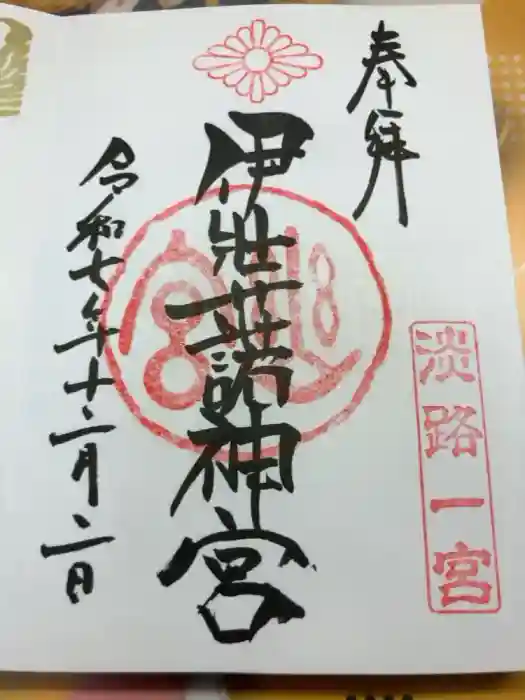 奉拝
淡路一宮
伊弉諾神宮
令和七年十二月二日